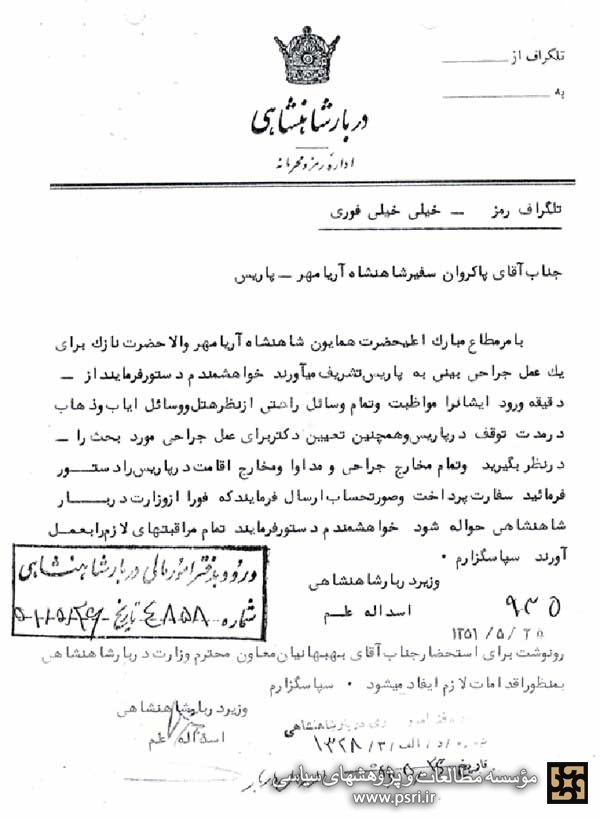 تلگراف از
به
دربار شاهنشاهی
اداره رمز و محرمانه
تلگراف رمز – خیلی خیلی فوری
جناب آقای پاکروان سفیر شاهنشاه آریامهر – پاریس
بامر مطاع مبارك اعلیحضرت همایون شاهنشاه آریامهر والاحضرت نازك برای
یك عمل جراحی بینی به پاریس تشریف میآورند خواهشمندم دستور فرمایند از –
دقیقه ورود ایشانرا مواظبت وتمام وسائل راحتی از نظر هتل ووسائل ایاب وذهاب
درمدت توقف درپاریس وهمچنین تعیین دکتر برای عمل جراحی مورد بحث را –
درنظر بگیرید وتمام مخارج جراحی و مداوا ومخارج اقامت درپاریس را دستور
فرمائید سفارت پرداخت وصورتحساب ارسال فرمایند که فورا از وزارت دربار
شاهنشاهی حواله شود خواهشمندم دستور فرمایند تمام مراقبتهای لازم را بعمل
آورند سپاسگزارم ۰
وزیر دربار شاهنشاهی
اسداله علم
۹۳۵
۱۳۵۱/۵/۲۵
ورود بدفتر امور مالی دربار شاهنشاهی
شماره ۴۸۵۸ تاریخ
رونوشت برای استحضار جناب آقای بهبهانیان معاون محترم وزارت دربار شاهنشاهی
بمنظور اقدامات لازم ایفاد میشود ۰ سپاسگزارم
وزیر دربار شاهنشاهی
اسداله علم
دربار شاهنشاهی
۱۳۲۸/۳/الف/د
تاریخ
مؤسسه مطالعات و پژوهشهای سیاسی
www.psri.ir